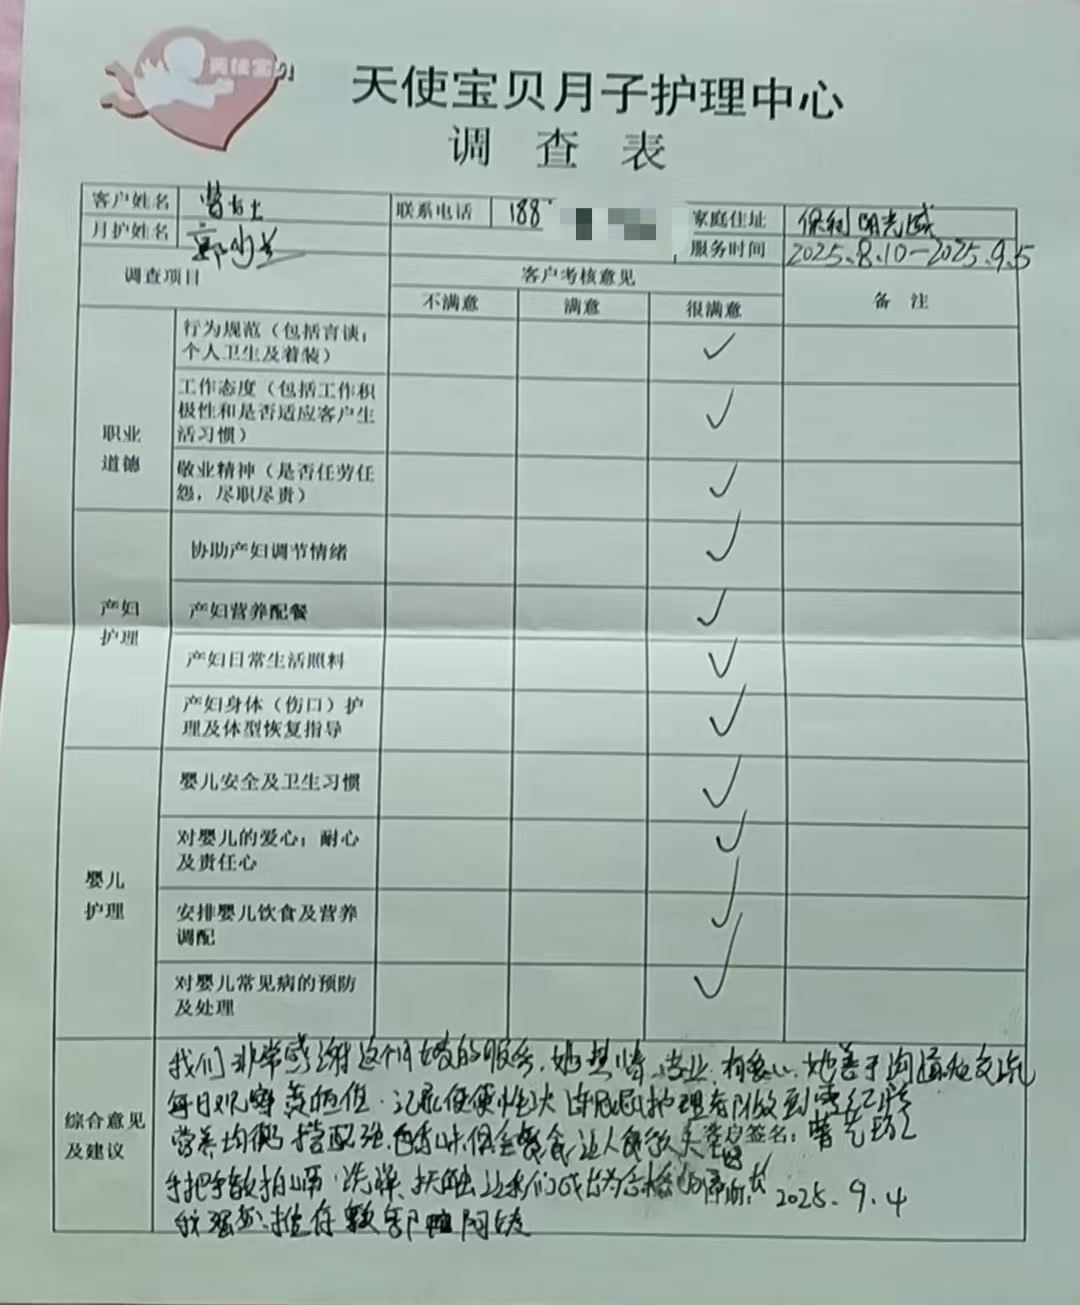 天使宝贝
天使宝贝月子护理中心
调查表
客户姓名 曹女士 联系电话 188 家庭住址 保利明光
月护姓名 服务时间 2025.8.10-2025.9.5
调查项目 客户考核意见 备注
不满意 满意 很满意
职业道德
行为规范（包括言谈；
个人卫生及着装） ✓
工作态度（包括工作积
极性和是否适应客户生
活习惯） ✓
敬业精神（是否任劳任
怨，尽职尽责） ✓
产妇护理
协助产妇调节情绪 ✓
产妇营养配餐 ✓
产妇日常生活照料 ✓
产妇身体（伤口）护
理及体型恢复指导 ✓
婴儿护理
婴儿安全及卫生习惯 ✓
对婴儿的爱心；耐心
及责任心 ✓
安排婴儿饮食及营养
调配 ✓
对婴儿常见病的预防
及处理 ✓
综合意见及建议
我们非常感谢这个月嫂的服务，她热情，专业，有爱心，她善于沟通和交流
每日观察黄疸值，记录便便性状 护理 做到零红臀
营养均衡搭配 月子餐 让人食欲大 客户签名：曹
手把手教拍嗝、洗澡、抚触让我们成为合格的 日期： 2025.9.4
我强烈推荐 阿姨